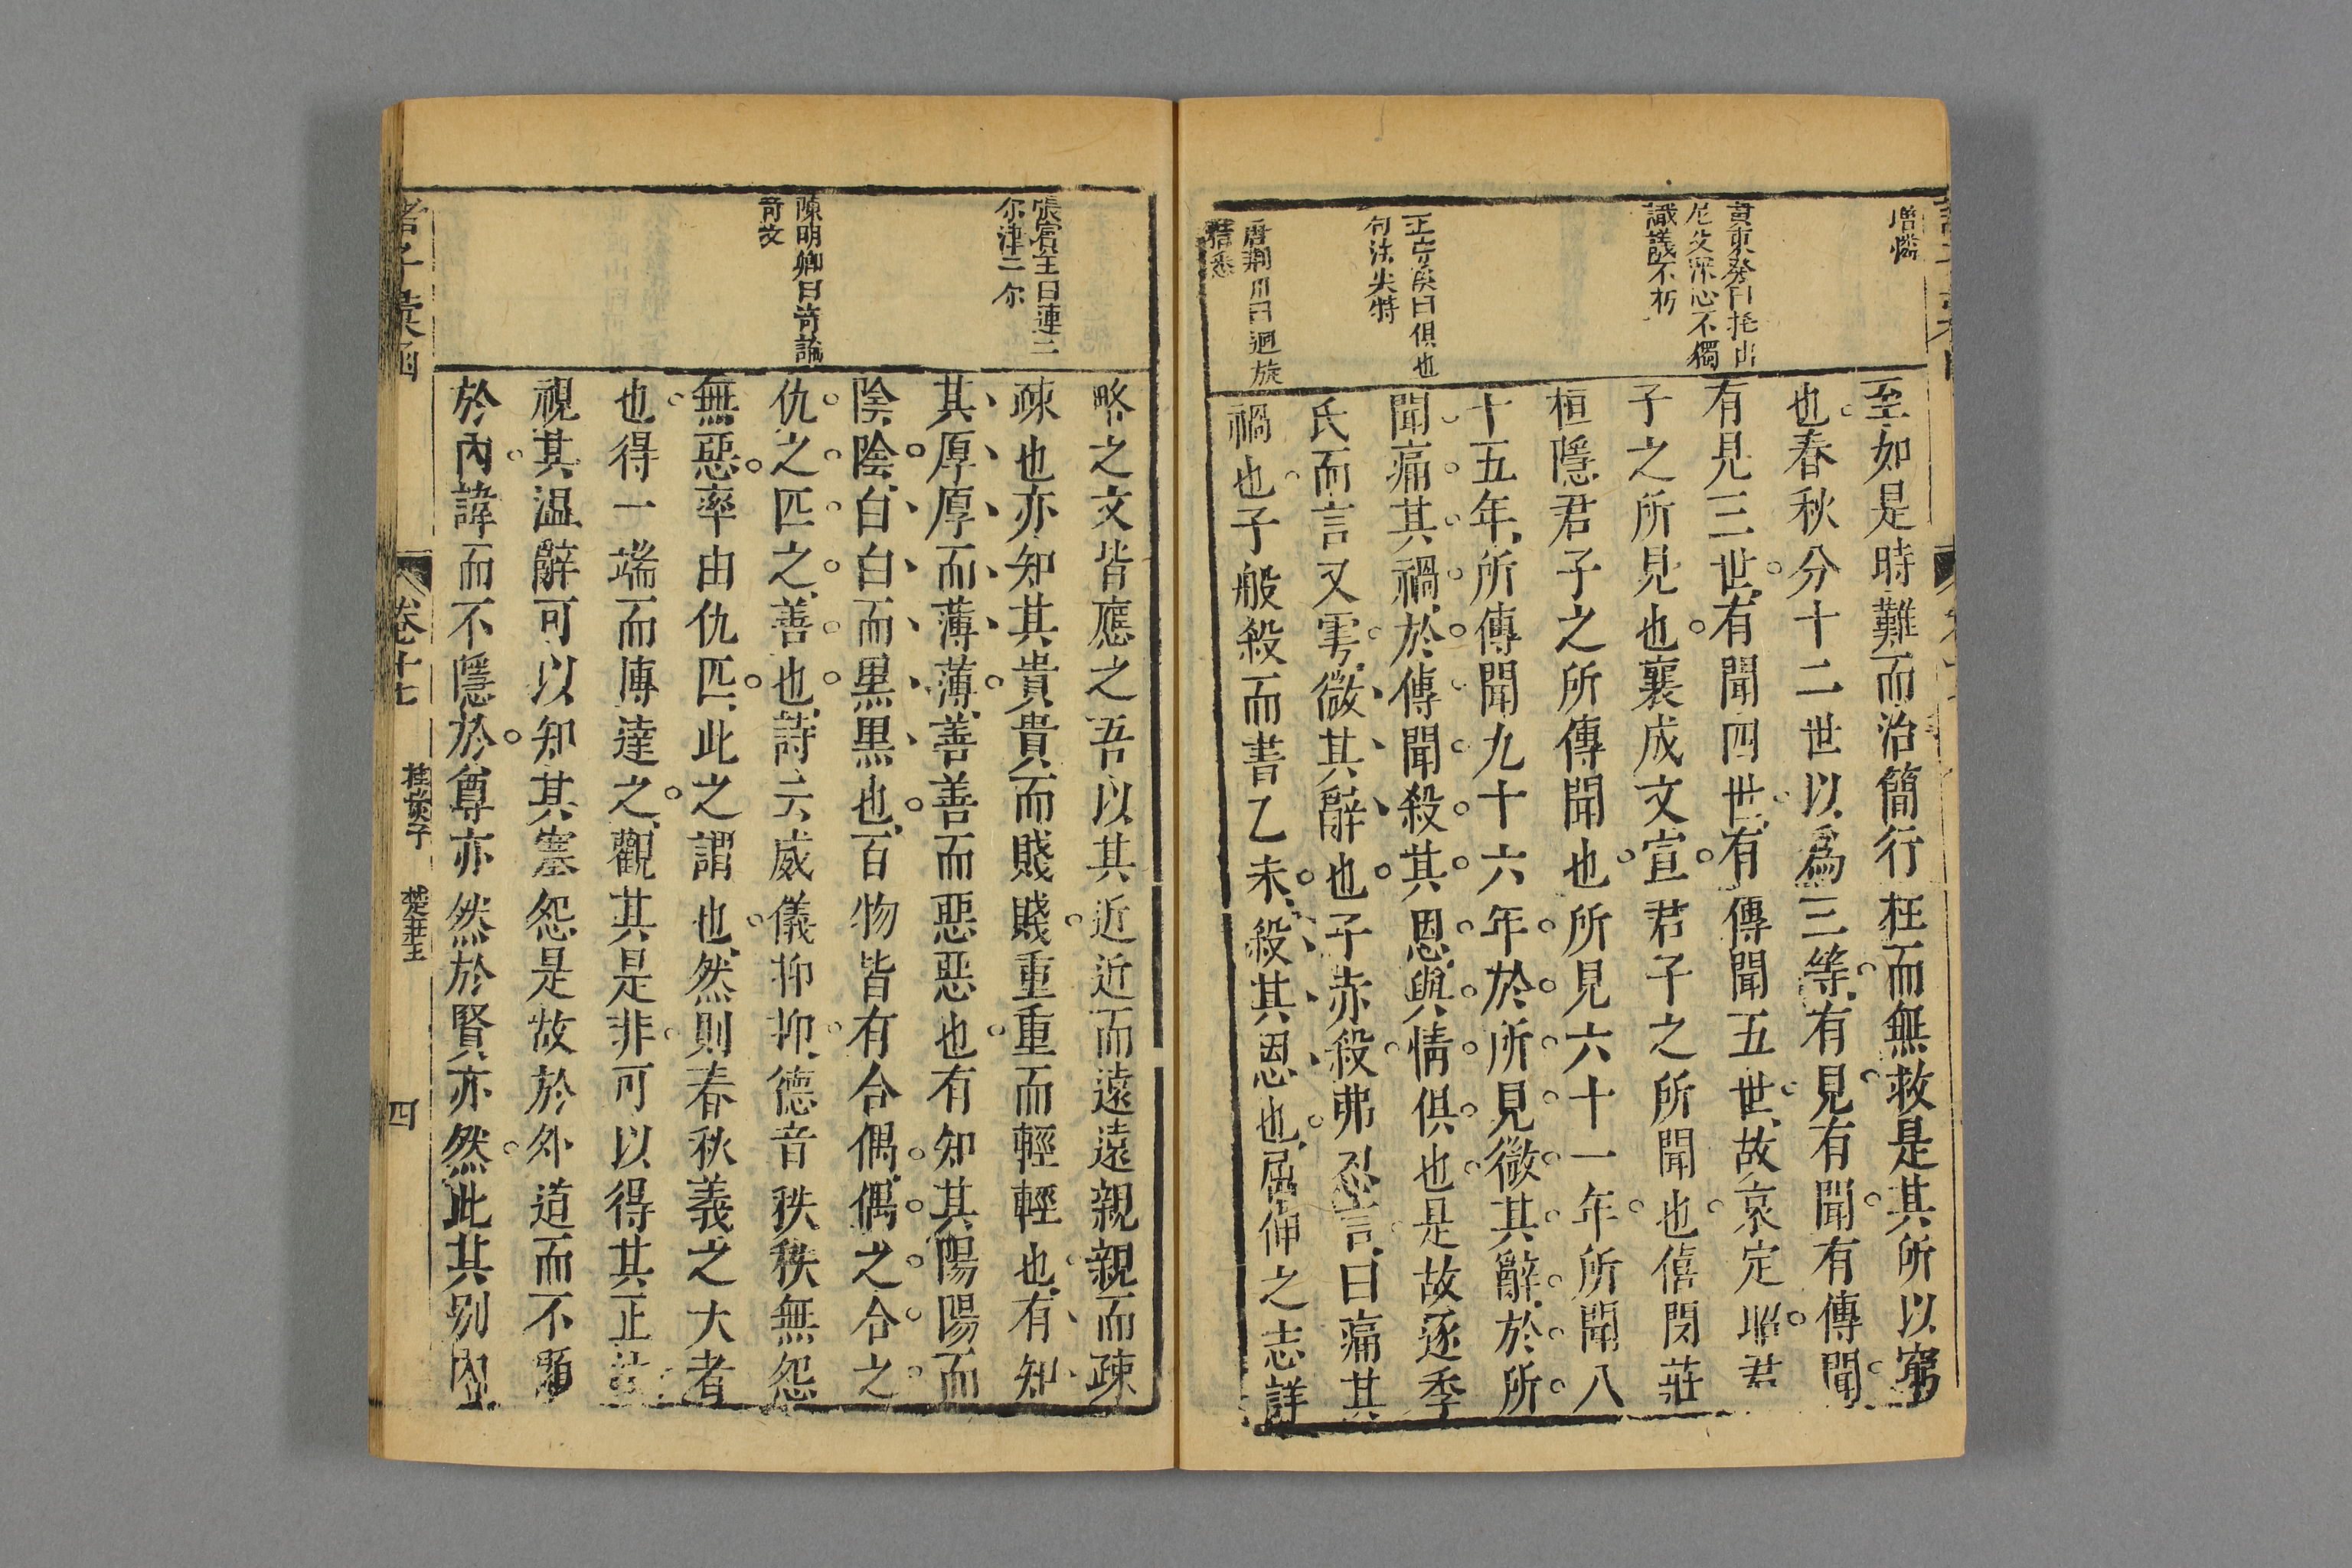 增憐
黃東發曰托出
尼父深心不獨
識議不朽
王守溪曰俱也
句法尖特
唐荊川曰迴旋
精悉
至如是時難而治簡行枉而無救是其所以窮
也春秋分十二世以爲三等有見有聞有傳聞
有見三世有聞四世有傳聞五世故哀定昭君
子之所見也襄成文宣君子之所聞也僖閔莊
桓隱君子之所傳聞也所見六十一年所聞八
十五年所傳聞九十六年於所見微其辭於所
聞痛其禍於傳聞殺其恩與情俱也是故逐季
氏而言又雩微其辭也子赤殺弗忍言日痛其
禍也子般殺而書乙未殺其恩也屈伸之志詳
張賓王曰連二
尒津二尒
陳明卿曰奇論
奇文
略之文皆應之吾以其近近而遠遠親親而疎
疎也亦知其貴貴而賤賤重重而輕輕也有知
其厚厚而薄薄善善而惡惡也有知其陽陽而
陰陰白白而黒黒也百物皆有合偶偶之合之
仇之匹之善也詩云威儀抑抑德音秩秩無怨
無惡率由仇匹此之謂也然則春秋義之大者
也得一端而博達之觀其是非可以得其正法
視其温辭可以知其塞怨是故於外道而不顯
於內諱而不隱於尊亦然於賢亦然此其别內
諸子彙函
卷十七
桂巖子
楚莊王
四